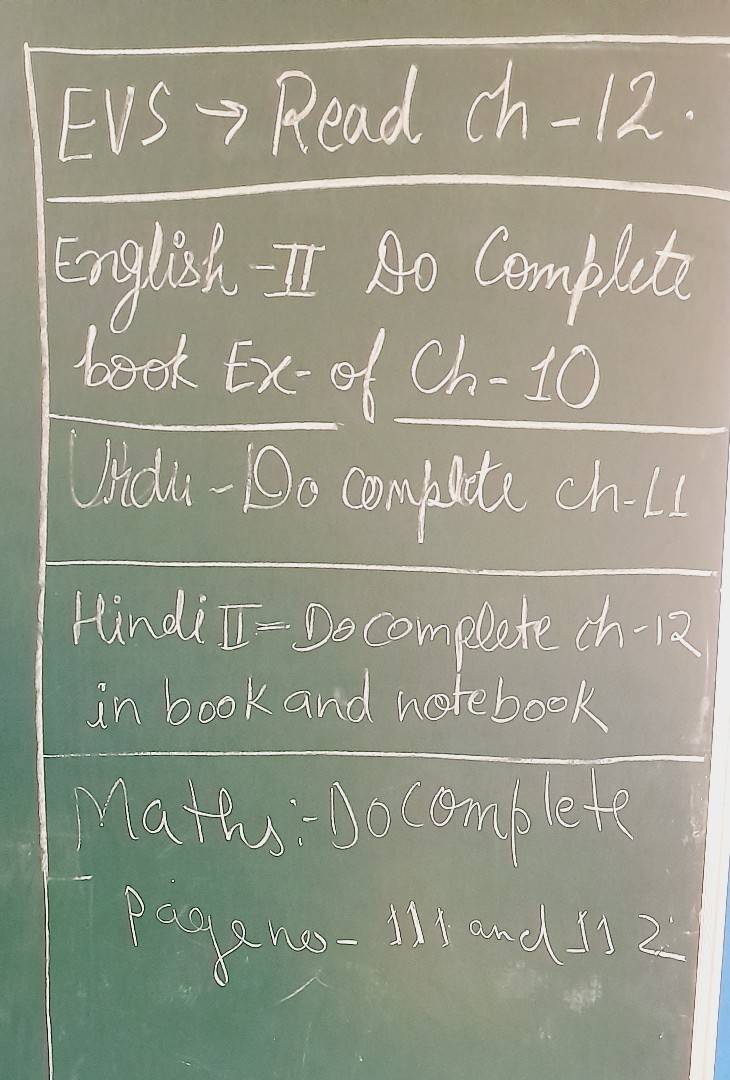 EVS → Read ch-12.
English-II Do Complete
book Ex- of Ch-10
Urdu-Do complete ch-11
Hindi II=Do complete ch-12
in book and notebook
Maths:-Do complete
Page no- 111 and 112